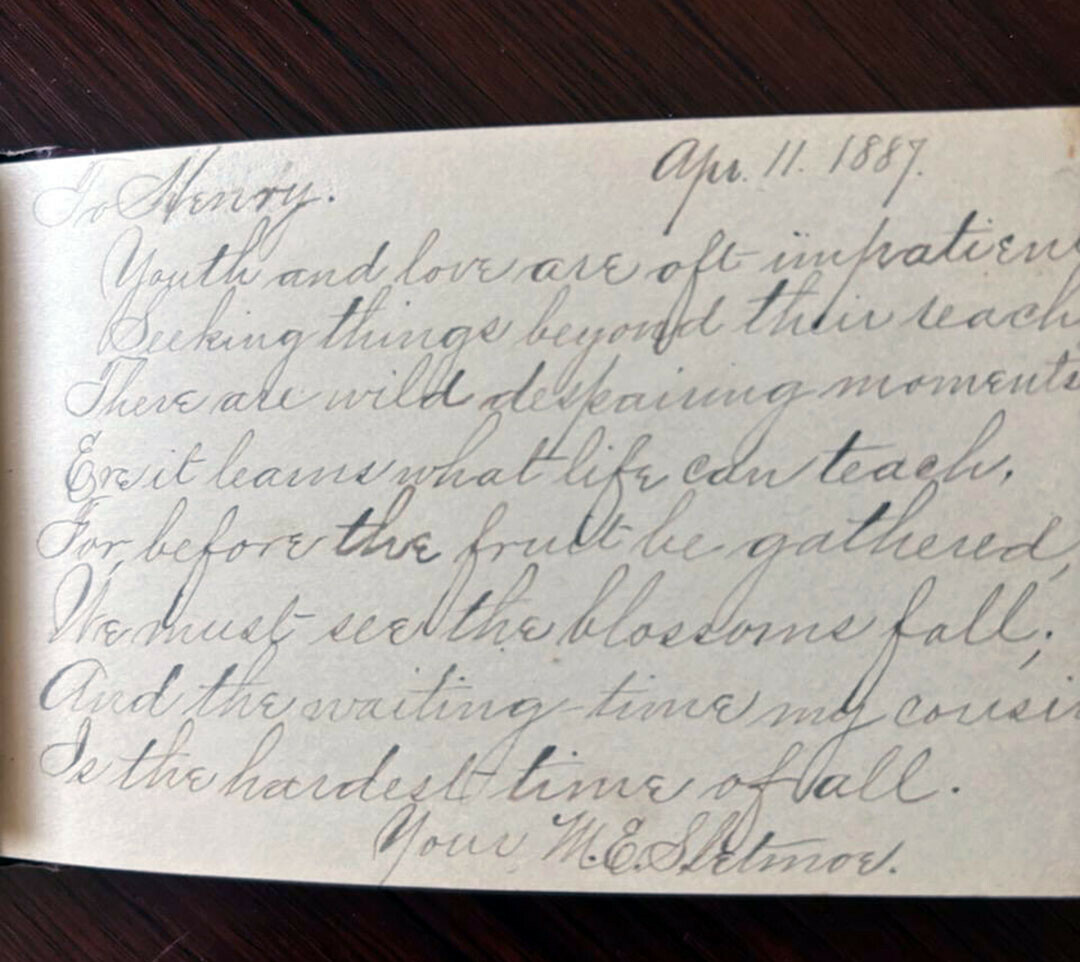 To Henry. Apr. 11. 1887.
Youth and love are oft impatien
Seeking things beyond their reach
There are wild despairing moments
Ere it learns what life can teach.
For before the fruit be gathered,
We must see the blossoms fall;
And the waiting time my cousi
Is the hardest time of all.
Your M.E.